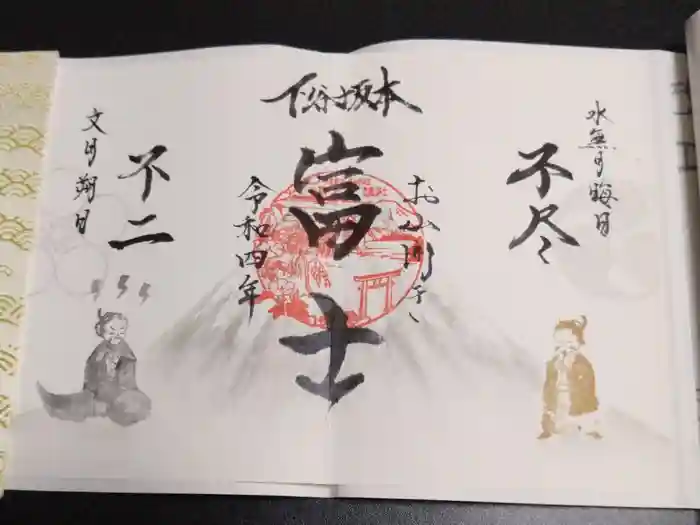 水無月晦日
不尽
お山開き
下谷坂本
富士
令和四年
不二
文月朔日